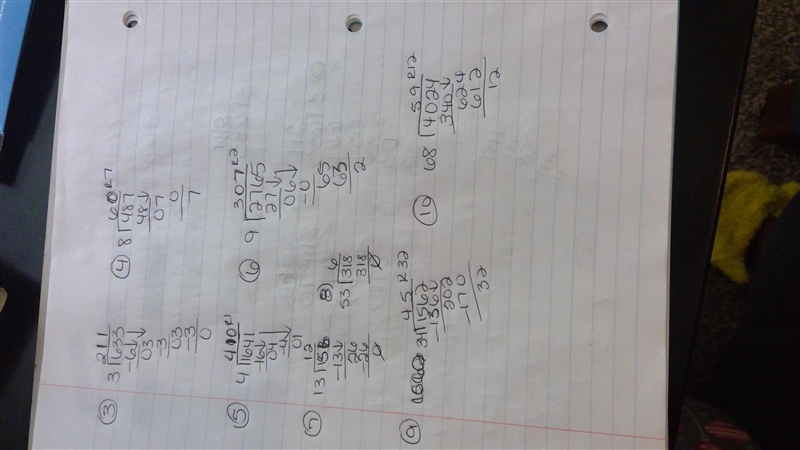 ③ 211
3 ⟌633
-6↓
03
-3
03
-3
0
④ 60R7
8 ⟌487
48↓
07
0
7
⑤ 410R1
4 ⟌1641
-16↓
04↓
-4
01
⑥ 307R2
9 ⟌2765
27↓
06↓
-0
65
63
2
⑦ 12
13 ⟌156
-13↓
26
-26
0
8) 6
53 ⟌318
318
0
⑨ 45 R32
34 ⟌1562
-136↓
202
-170
32
⑩ 59 R12
68 ⟌4024
340↓
624
612
12